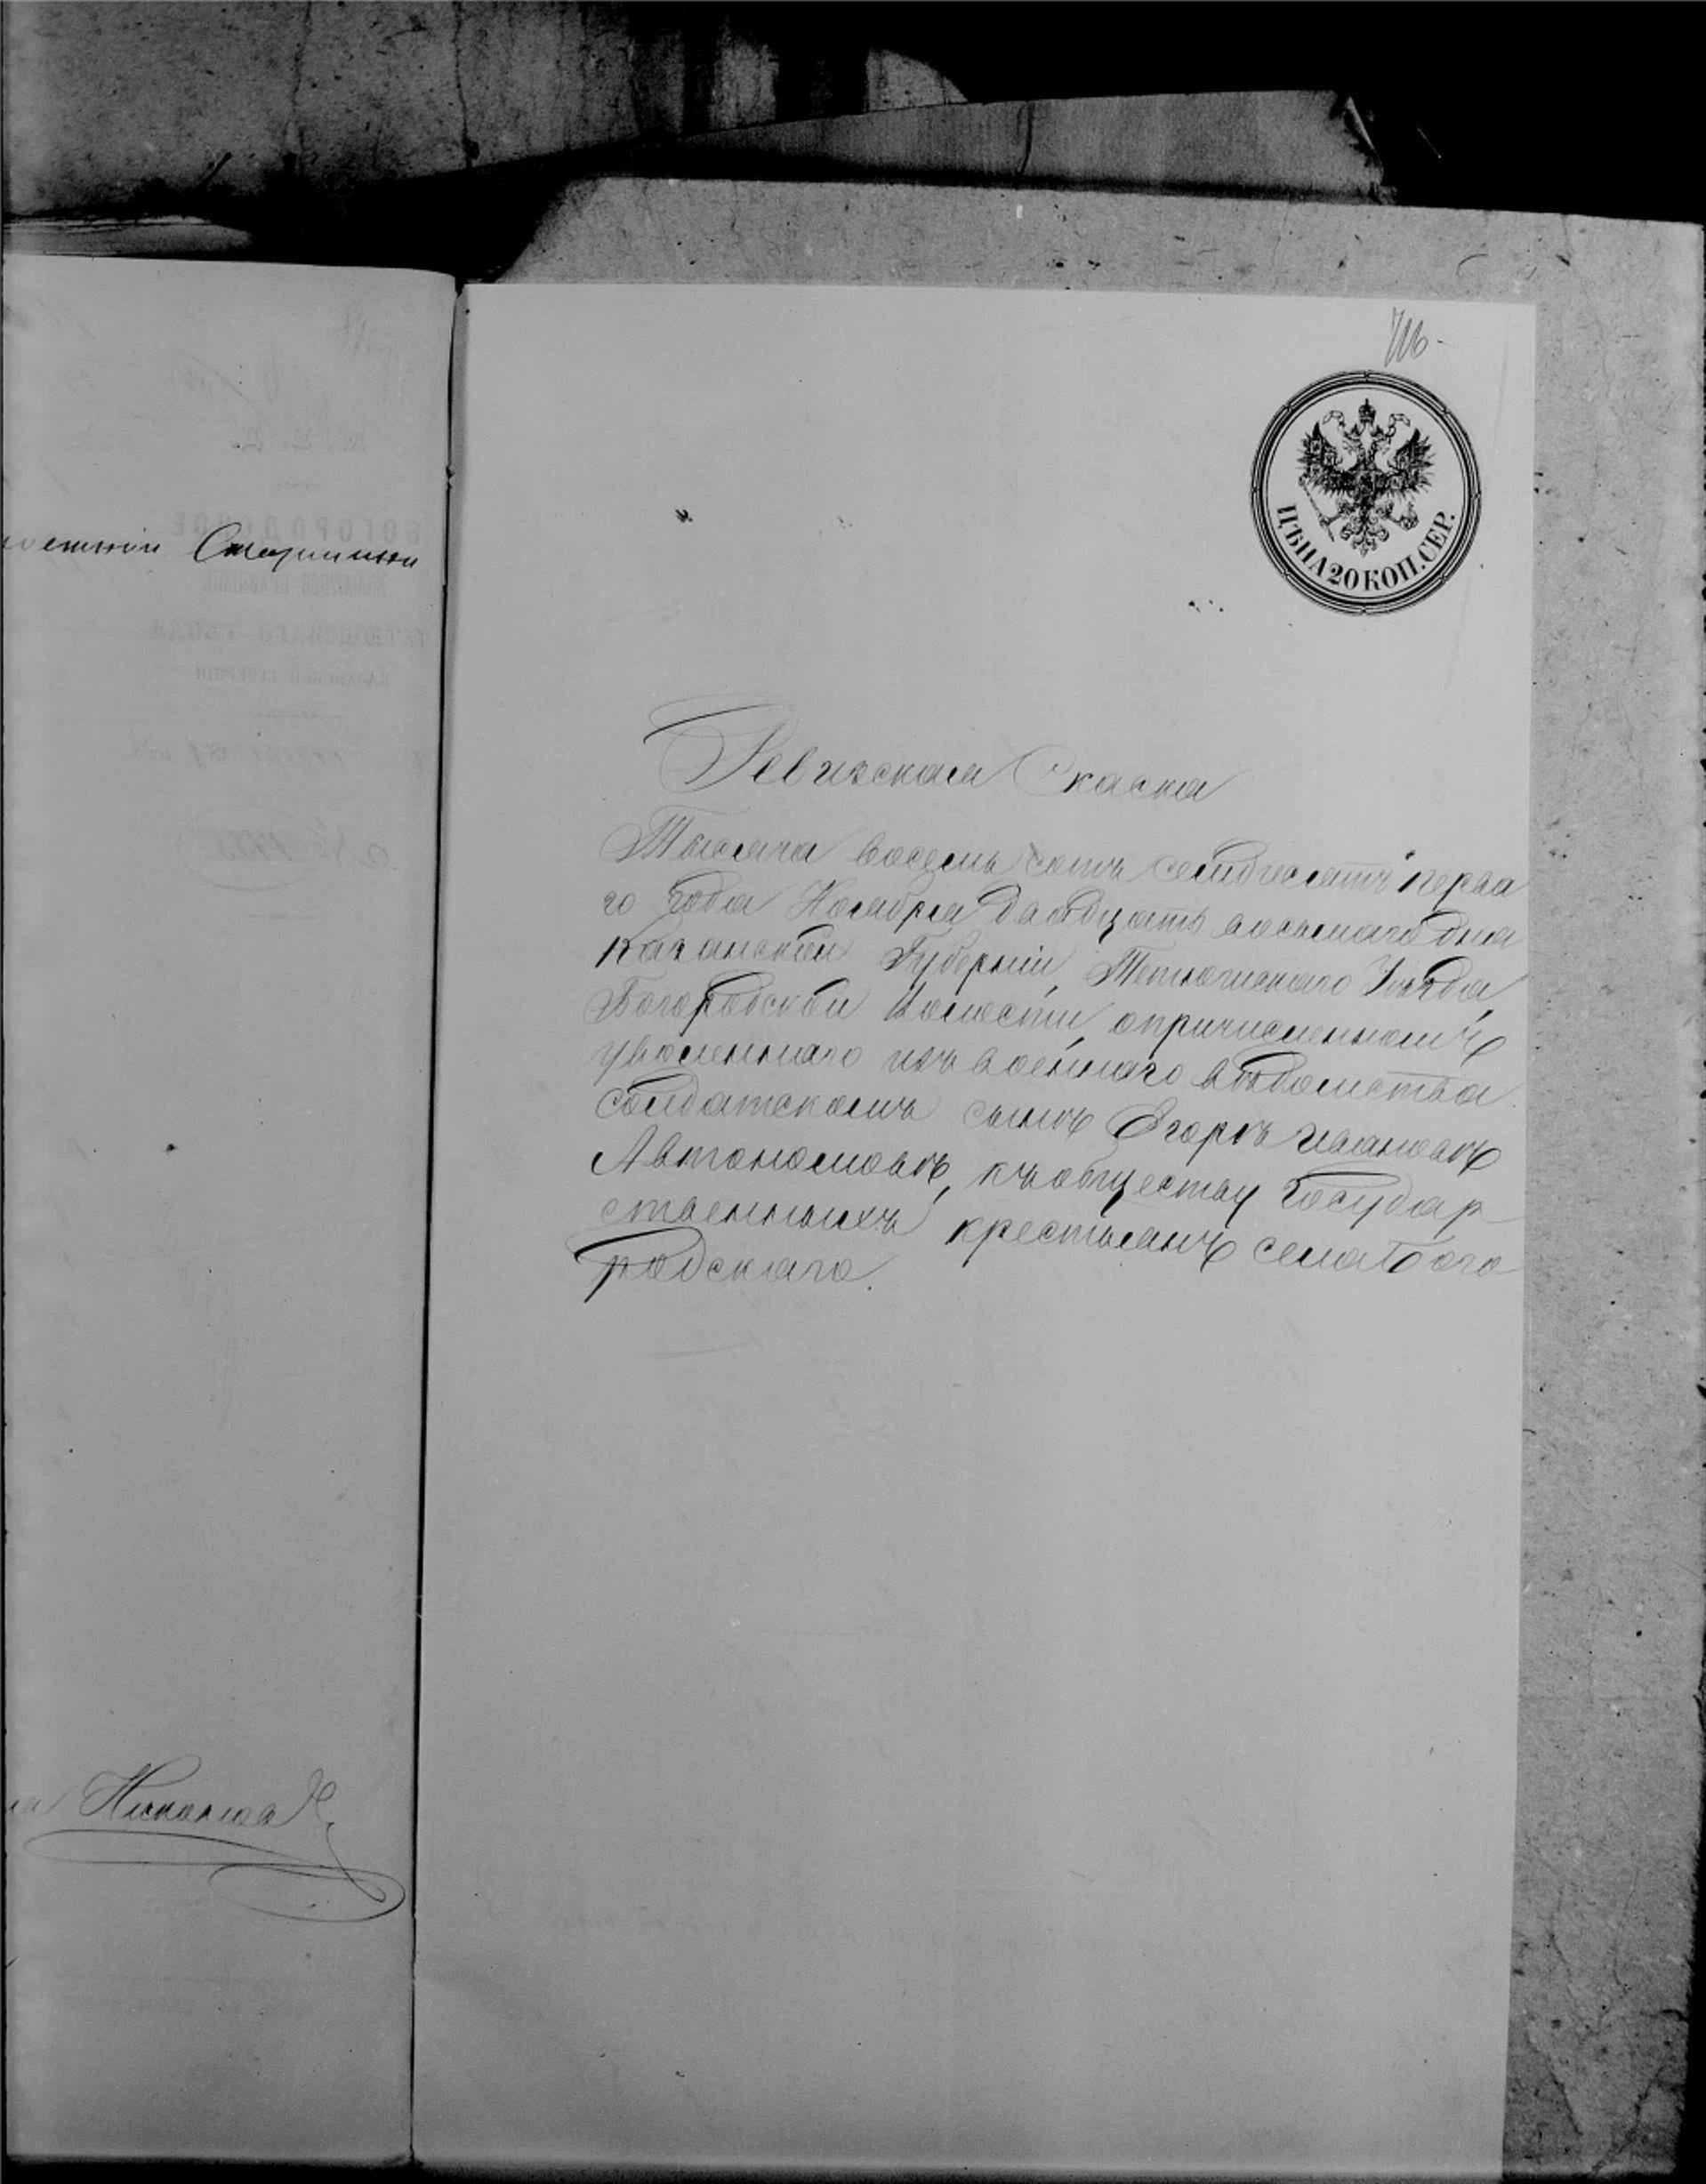 Старшина
Никонова
716
ЦѢНА 20 КОП. СЕР.
Ревизская Скаска
Тысяча восемь сотъ семдесятъ перва
го года Ноября двадцать восьмаго дня
Казанской Губерніи, Тетюшскаго Уѣзда,
Богородской Волости, опричисленномъ
уволеннаго изъ военнаго вѣдомства
солдатскомъ сынѣ Егорѣ Ивановѣ
Автономовѣ, къ обществу Государ
ственныхъ крестьянъ села Бого
родскаго.